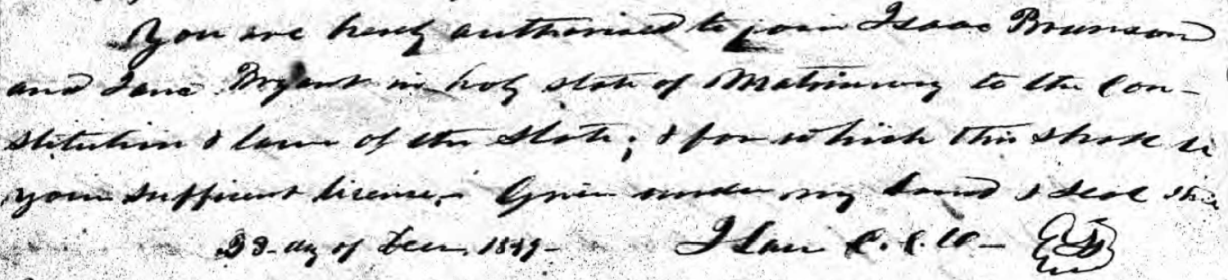 You are hereby authorised to join Isaac Brunson
and Jane Bryant in holy state of Matrimony to the Con-
stitution & laws of this State; & for which this shall be
your sufficient license. Given under my hand & seal this
day of Decr. 1849-